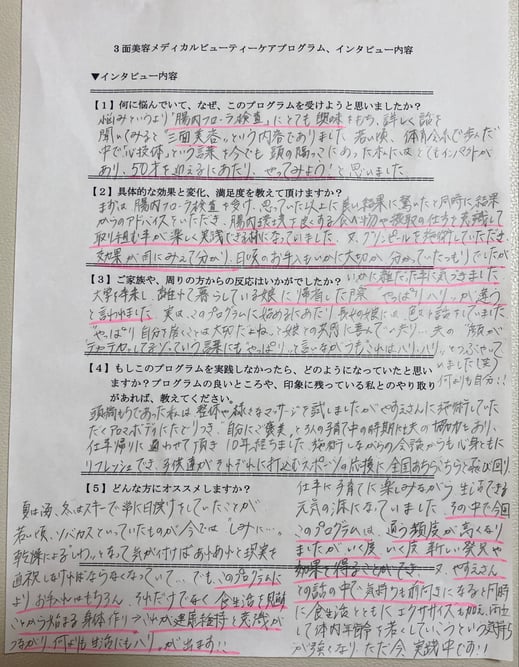 3面美容メディカルビューティーケアプログラム、インタビュー内容
▼インタビュー内容
【1】何に悩んでいて、なぜ、このプログラムを受けようと思いましたか？
悩みというより「腸内フローラ検査」にとても興味をもち、詳しく話を
聞いてみると"三面美容"という内容でありました。若い頃、体育会系で歩んだ
中で"心技体"という言葉を今でも頭の隅っこにあった私には、とてもインパクトが
あり、50才を迎えるにあたり、やってみよう！と思いました。
【2】具体的な効果と変化、満足度を教えて頂けますか？
まずは腸内フローラ検査を受け、思っていた以上に良い結果に驚いたと同時に結果
からのアドバイスをいただき、腸内環境を良くする食べ物や摂取の仕方を意識して
取り組む事が楽しく実践できる様になっていました。又、グランピールを施術していただき
効果が目にみえて分かり、日頃のお手入れがいかに大切か分かっていたつもりでしたが
いかに雑だった事に気づきました。
【3】ご家族や、周りの方からの反応はいかがでしたか？
大学を卒業し、離れて暮らしている娘に帰省した際"やっぱりハリっが違う"
と言われました。実は、このプログラムに始めるにあたり長女の娘には色々と話をしていました。
"やっぱり自分を磨くことは大切だよね"と娘との共同に喜んで
夫の"顔が
テカテカしてるゾ"っていう言葉にも やっぱり と言いながらもこれはハリ・ハリっとつぶやって
いました(笑)
何よりも自分!!
【4】もしこのプログラムを実践しなかったら、どのようになっていたと思い
ますか？プログラムの良いところや、印象に残っている私とのやり取り
があれば、教えてください。
頭痛もちであった私は整体や様々なマッサージを試しましたがやすえさんに施術してい
ただくアロマボディにたどりつき、自分にご褒美と3人の子育て中の時期には夫の協力もあり、
仕事帰りに通わせて頂き10年経ちました。施術しながらの会話からも心身ともに
リフレッシュでき、子供達がそれぞれに打込むスポーツの応援に全国あちらこちらと飛び回り、
仕事に子育てに楽しみながら生活できる
元気の源になっていました。その中で今回
このプログラムは、通う頻度が高くなり
ましたがいく度いく度 新しい発見や
効果を得ることができ、又、やすえさん
との話の中で気持ちも前向きになると同時
に食生活とともにエクササイズも加え、何と
して体内年齢を若くしていこうという気持ち
が強くなり、ただ今実践中です!!
【5】どんな方にオススメしますか？
夏は海、冬はスキーで常に日焼けをしていたことが
若い頃、ソバカスといっていたものが今では"しみに…。
乾燥によるしわっ、となって気が付けばあれあれと現実を
直視しなければならなくなっていて…でも、このプログラムに
よりお手入れはもちろん、それだけでなく食生活を見直す
ことから始まる身体作り→これが健康維持と意識が
つながり、何よりも生活にもハリっが出ます!!